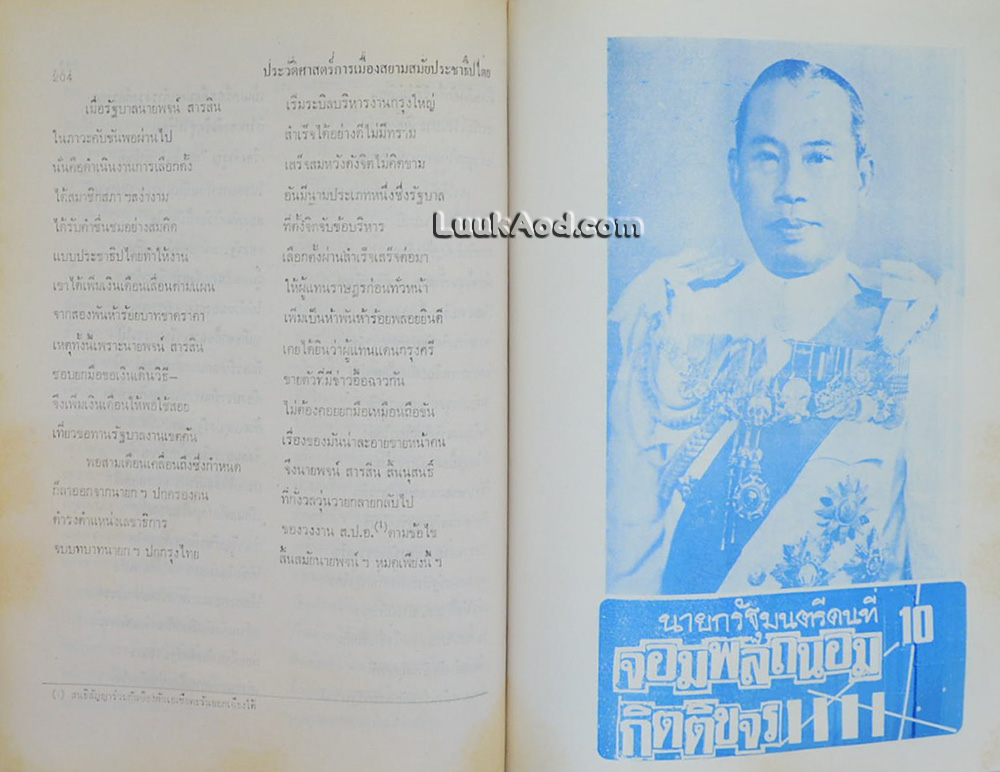 204
ประวัติศาสตร์การเมืองสยามสมัยประชาธิปไตย
เมื่อรัฐบาลนายพจน์ สารสิน เริ่มระบิลบริหารงานกรุงใหญ่
ในภาวะคับขันพอผ่านไป สำเร็จได้อย่างดีไม่มีทราม
นั่นคือดำเนินงานการเลือกตั้ง เสร็จสมหวังดังจิตไม่คิดขาม
ได้สมาชิกสภาฯสง่างาม อันมีนามประเภทหนึ่งซึ่งรัฐบาล
ได้รับคำชื่นชมอย่างสมคิด ที่ตั้งจิตจับข้อบริหาร
แบบประชาธิปไตยทำให้งาน เลือกตั้งผ่านสำเร็จเสร็จต่อมา
เขาได้เพิ่มเงินเดือนเลื่อนตามแผน ให้ผู้แทนราษฎรก่อนทั่วหน้า
จากสองพันห้าร้อยบาทขาดราคา เพิ่มเป็นห้าพันห้าร้อยพลอยยินดี
เหตุทั้งนี้เพราะนายพจน์ สารสิน เคยได้ยินว่าผู้แทนแดนกรุงศรี
ชอบยกมือขอเงินเดินวิธี– ขายตัวที่มีข่าวอื้อฉาวกัน
จึงเพิ่มเงินเดือนให้พอใช้สอย ไม่ต้องคอยยกมือเหมือนถือขัน
เที่ยวขอทานรัฐบาลงานเขตคัน เรื่องของมันน่าละอายขายหน้าคน
พอสามเดือนเคลื่อนถึงซึ่งกำหนด จึงนายพจน์ สารสิน สิ้นนุสนธิ์
ก็ลาออกจากนายกฯ ปกครองคน ที่กั้งวลวุ่นวายกลายกลับไป
ดำรงตำแหน่งเลขาธิการ ของวงงาน ส.ป.อ.(1)ตามข้อไข
จบบทบาทนายกฯ ปกกรุงไทย สิ้นสมัยนายพจน์ฯ หมดเพียงนี้ฯ
(1) สนธิสัญญาร่วมกันป้องกันเอเชียตะวันออกเฉียงใต้
LuukAod.com
นายกรัฐมนตรีคนที่ 10
จอมพลถนอม
กิตติขจร